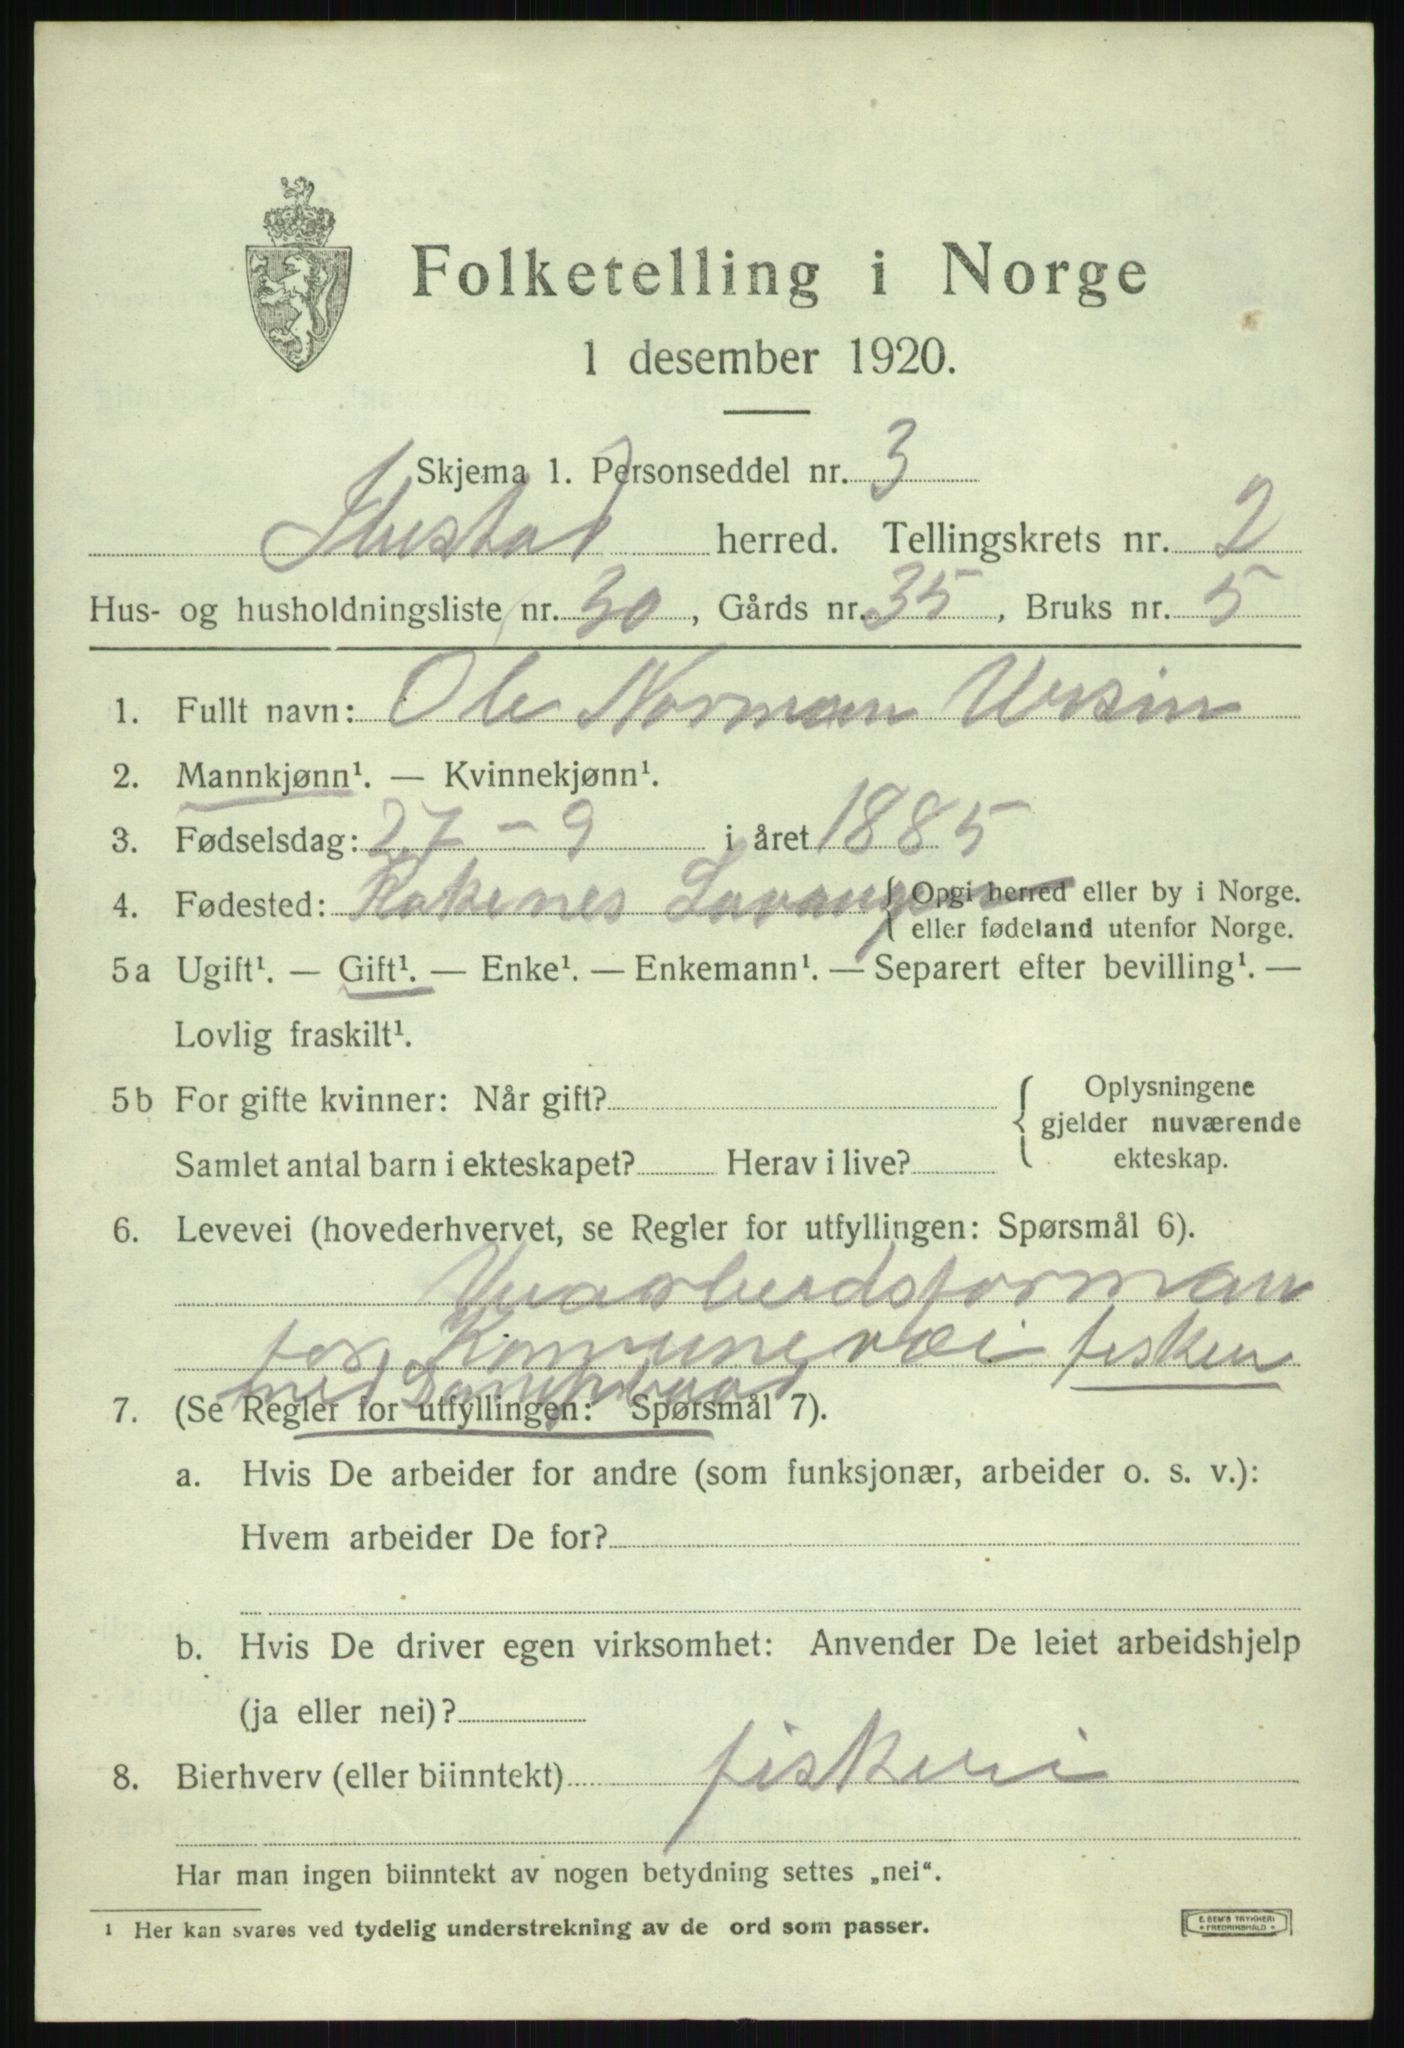 Folketelling i Norge
1 desember 1920.
Skjema 1. Personseddel nr. 3
Ibestad herred. Tellingskrets nr. 2
Hus- og husholdningsliste nr. 30, Gårds nr. 35, Bruks nr. 5
1. Fullt navn: Ole Norman Ursin
2. Mannkjønn¹. — Kvinnekjønn¹.
3. Fødselsdag: 27 - 9 i året 1885
4. Fødested: Røkenes Lavangen { Opgi herred eller by i Norge.
eller fødeland utenfor Norge.
5a Ugift¹. — Gift¹. — Enke¹. — Enkemann¹. — Separert efter bevilling¹. —
Lovlig fraskilt¹.
5b For gifte kvinner: Når gift? { Oplysningene
gjelder nuværende
Samlet antal barn i ekteskapet? Herav i live? ekteskap.
6. Levevei (hovederhvervet, se Regler for utfyllingen: Spørsmål 6).
fisker
med
7. (Se Regler for utfyllingen: Spørsmål 7).
a. Hvis De arbeider for andre (som funksjonær, arbeider o. s. v.):
Hvem arbeider De for?
b. Hvis De driver egen virksomhet: Anvender De leiet arbeidshjelp
(ja eller nei)?
8. Bierhverv (eller biinntekt) fiskeri
Har man ingen biinntekt av nogen betydning settes „nei“.
¹ Her kan svares ved tydelig understrekning av de ord som passer.
E. SEM'S TRYKKERI
FREDRIKSHALD